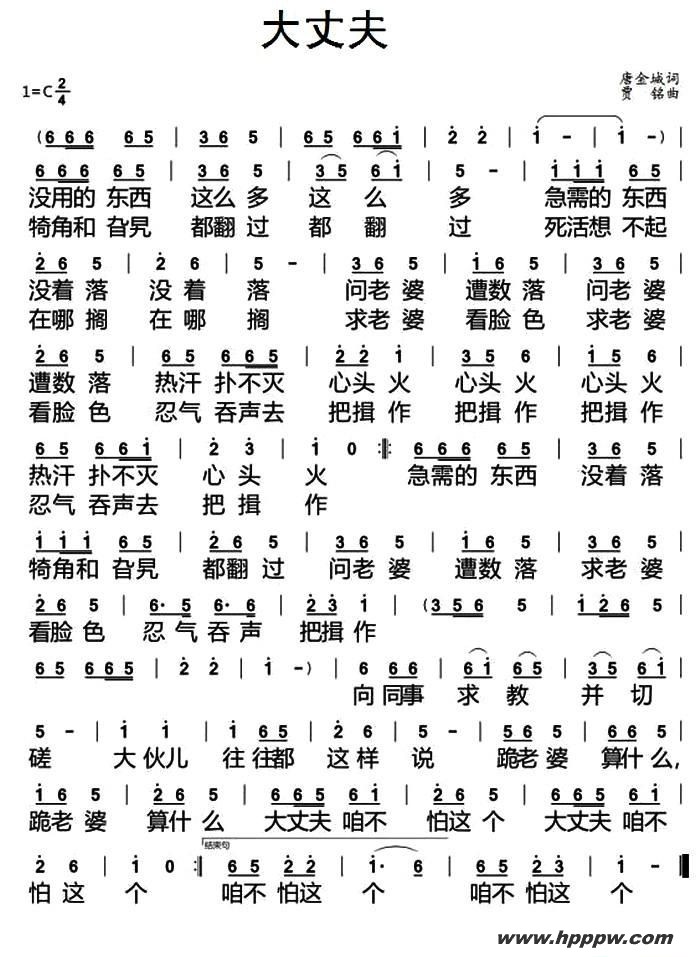 大丈夫
唐金城词
1=C 2/4
贾 铭曲
(6 6 6 6 5 | 3 6 5 | 6 5 6 6 1 | 2 2 | 1 - | 1 - )
6 6 6 6 5 | 3 6 5 | 3 5 6 1 | 5 - | 1 1 1 6 5
没用的 东西 这么 多 这 么 多 急需的 东西
犄角和 旮旯 都翻 过 都 翻 过 死活想 不起
2 6 5 | 2 6 | 5 - | 3 6 5 | 1 6 5 | 3 6 5 |
没着 落 没 着 落 问老 婆 遭数 落 问老 婆
在哪 搁 在 哪 搁 求老 婆 看脸 色 求老 婆
2 6 5 | 6 5 6 6 5 | 2 2 1 | 3 5 6 | 1 5 6 |
遭数 落 热汗 扑不灭 心头 火 心头 火 心头 火
看脸 色 忍气 吞声去 把揖 作 把揖 作 把揖 作
6 5 6 6 1 | 2 3 | 1 0 :‖: 6 6 6 6 5 | 3 6 5 |
热汗 扑不灭 心 头 火 急需的 东西 没着 落
忍气 吞声去 把 揖 作
1 1 1 6 5 | 2 6 5 | 3 6 5 | 1 6 5 | 3 6 5 |
犄角和 旮旯 都翻 过 问老 婆 遭数 落 求老 婆
2 6 5 | 6· 5 6· 6 | 2 3 1 | (3 5 6 5 | 1 2 6 5 |
看脸 色 忍 气 吞声 把揖 作
6 5 6 6 5 | 2 2 | 1 - ) | 6 6 6 | 6 1 6 5 | 3 5 6 1 |
向 同事 求 教 并 切
5 - | 1 1 | 1 6 5 | 2 6 5 | 5 6 5 | 3 6 5 |
磋 大 伙儿 往 往都 这样 说 跪老 婆 算什 么,
1 6 5 | 2 6 5 | 6 6 5 6 1 | 2 6 5 | 6 6 5 6 1 |
跪老 婆 算什 么 大丈夫 咱不 怕这 个 大丈夫 咱不
结束句
2 6 | 1 0 :‖ 6 5 2 2 | 1· 6 | 6 5 2 3 | 1 - ‖
怕 这 个 咱不 怕这 个 咱不 怕这 个
www.hpppw.com